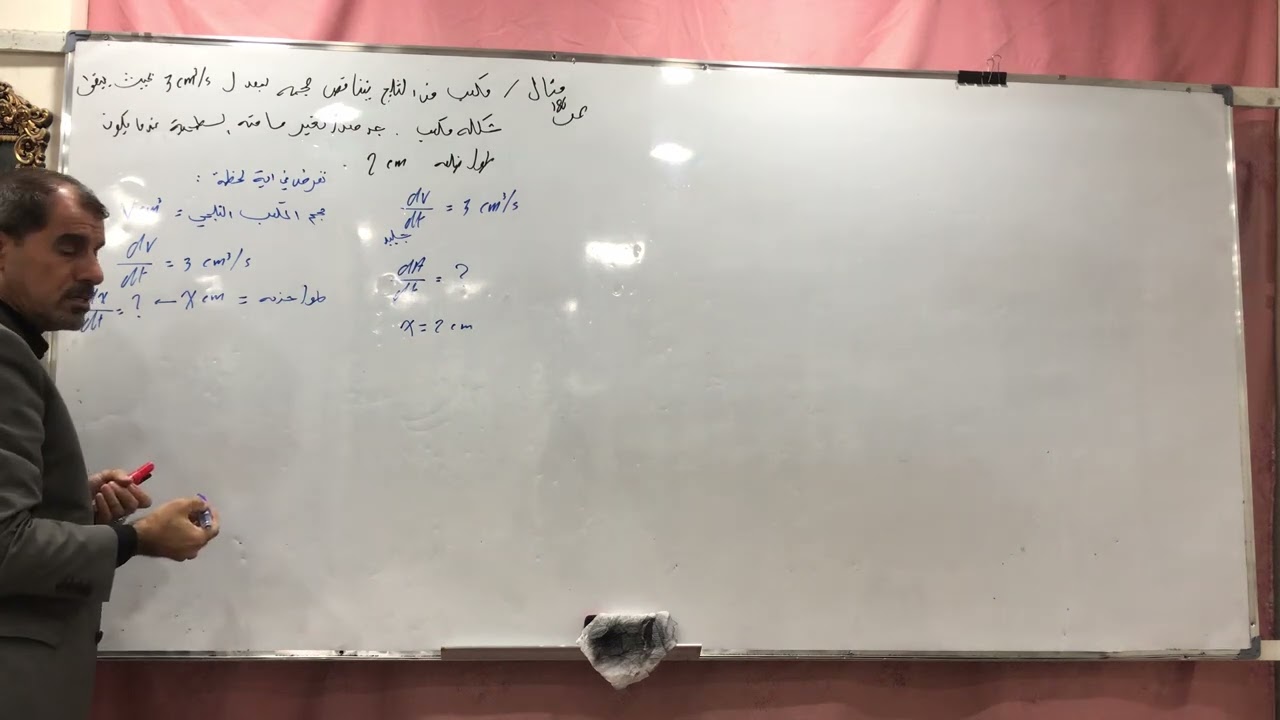 مثال / مكعب من الثلج يتناقص حجمه بمعدل ل 3 cm³/s بحيث يبقى
شكله مكعب . جد معدل تغير مساحته السطحية عندما يكون
طول ضلعه 2 cm .
نفرض في اية لحظة :
حجم المكعب الثلجي = V cm³
dv/dt = 3 cm³/s
طول حرفه = x cm ← dx/dt = ?
dv/dt = 3 cm³/s
dA/dt = ?
x = 2 cm